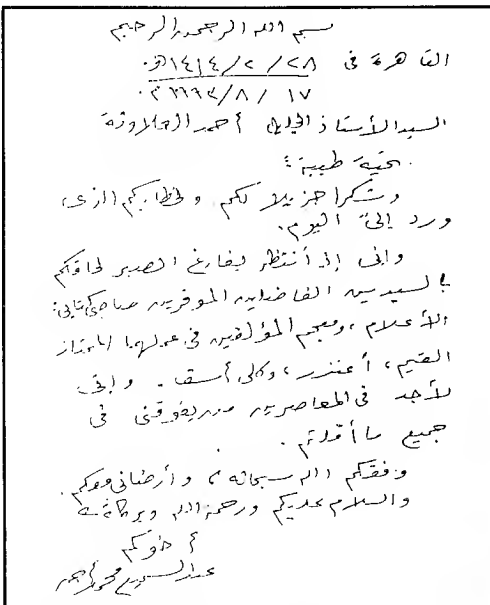 بسم الله الرحمن الرحيم
القاهرة في ٢٨/٢/١٤١٤هـ.
١٧/٨/١٩٩٣م.
السيد الأستاذ الجليل أحمد العلاونة
تحية طيبة:
وشكرا جزيلا لكم ولخطابكم الذى
ورد إلىّ اليوم.
وإنى إذ أنتظر بفارغ الصبر لحاقكم
بالسيدين الفاضلين الموقرين صاحبى كتابى:
الأعلام، ومعجم المؤلفين فى عملهما الممتاز
القيم، أعتذر، وكلى أسف. وإنى
لأجد فى المعاصرين من يفوقنى فى
جميع ما أقدم.
وفقكم الله سبحانه، وأرضانى ...
والسلام عليكم ورحمة الله وبركاته
أخوكم
عبد السميع محمد أحمد